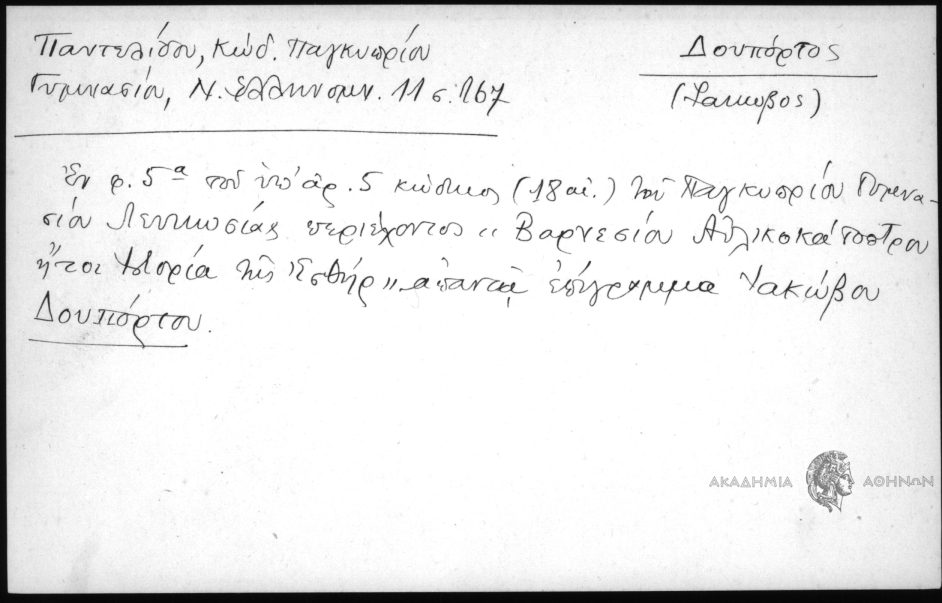 Παντελίδου, Κώδ. Παγκυπρίου
Γυμνασίου, Ν. Ἑλληνομν. 11 σ. 267
Δουπόρτος
(Ἰάκωβος)
Ἐν φ. 5α τοῦ ὑπ' ἀρ. 5 κώδικος (18 αἰ.) τοῦ Παγκυπρίου Γυμνα-
σίου Λευκωσίας περιέχοντος « Βαρνεσίου Αὐλικοκάτοπτρον
ἤτοι Ἱστορία τῆς Ἐσθήρ » ἀπαντᾷ ἐπίγραμμα Ἰακώβου
Δουπόρτου.
ΑΚΑΔΗΜΙΑ ΑΘΗΝΩΝ